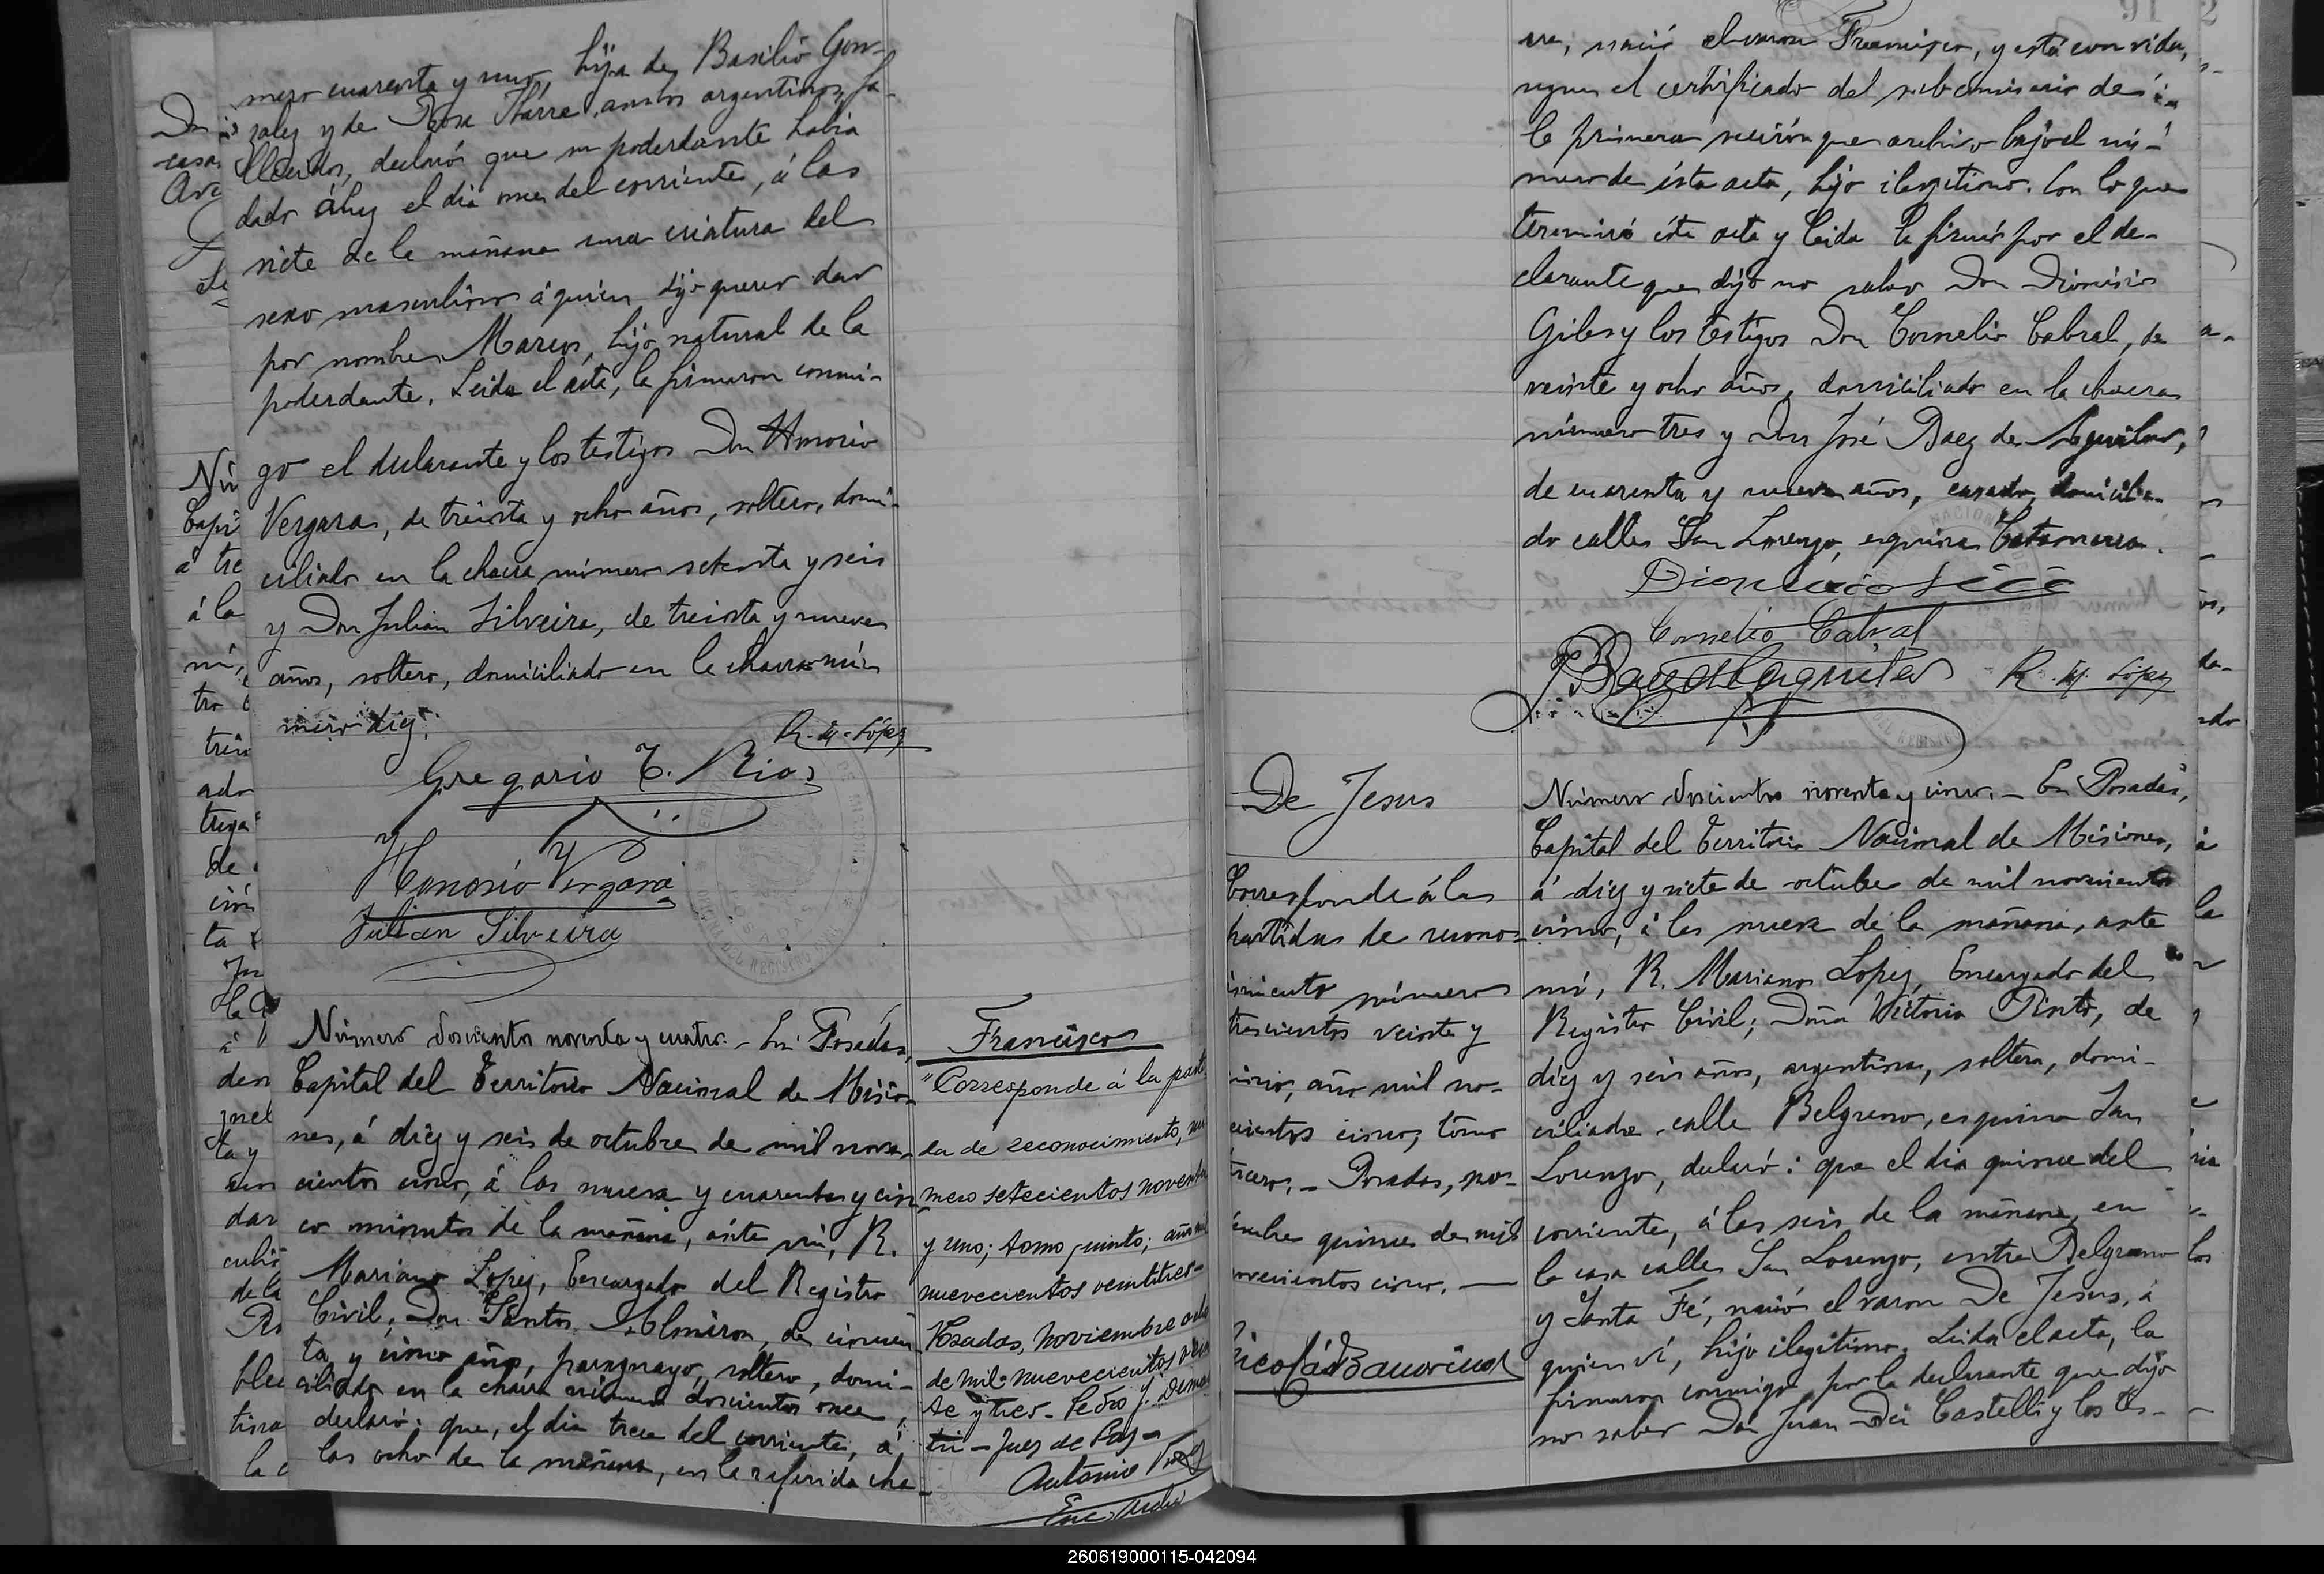 mero cuarenta y uno, hija de Basilio Gon-
zalez y de Rosa Ibarra, ambos argentinos, fa-
llecidos, declaró que su poderdante habia
dado á luz el dia once del corriente, á las
siete de la mañana una criatura del
sexo masculino á quien dijo querer dar
por nombre Marcos, hijo natural de la
poderdante. Leida el acta, la firmaron conmi-
go el declarante y los testigos Don Honorio
Vergara, de treinta y ocho años, soltero, domi-
ciliado en la chacra número setenta y seis
y Don Julian Silveira, de treinta y nueve
años, soltero, domiciliado en la chacra nú-
mero diez.
R. M. López
Gregorio T. Rios
Honorio Vergara
Julian Silveira
Número doscientos noventa y cuatro.- En Posadas,
Capital del Territorio Nacional de Misio-
nes, á diez y seis de octubre de mil nove-
cientos cinco, á las nueve y cuarenta y cin-
co minutos de la mañana, ante mi, R.
Mariano Lopez, Encargado del Registro
Civil, Don Santos Almiron, de cincuen-
ta y cinco años, paraguayo, soltero, domi-
ciliado en la chacra número doscientos once,
declaró: que, el dia trece del corriente, á
las ocho de la mañana, en la referida cha-
Francisco
"Corresponde á la part
da de reconocimiento, nu
mero setecientos noventa
y uno; tomo quinto; año mil
nuevecientos veintitres-
Posadas, Noviembre ocho
de mil nuevecientos vein
te y tres- Pedro J.
tri - Juez de Paz-
Antonio
cra, nació el varon Francisco, y está con vida,
segun el certificado del sub comisario de
la primera sección que archivo bajo el nú-
mero de ésta acta, hijo ilegitimo. Con lo que
terminó ésta acta y leida la firmó por el de-
clarante que dijo no saber Don Dionisio
Giles y los testigos Don Cornelio Cabral, de
veinte y ocho años, domiciliado en la chacra
número tres y Don José Baez de Aguilar,
de cuarenta y nueve años, casado, domicilia-
do calles San Lorenzo, esquina Catamarca.
Dionicio
Cornelio Cabral
R. M. López
De Jesus
Corresponde á las
partidas de recono-
cimiento número
trescientos veinte y
cinco, año mil no-
vecientos cinco, tomo
tercero.- Posadas, no-
viembre quince de mil
novecientos cinco.
Número doscientos noventa y cinco.- En Posadas,
Capital del Territorio Nacional de Misiones,
á diez y siete de octubre de mil novecientos
cinco, á las nueve de la mañana, ante
mi, R. Mariano Lopez, Encargado del
Registro Civil; Doña Victoria Pinto, de
diez y seis años, argentina, soltera, domi-
ciliada calle Belgrano, esquina San
Lorenzo, declaró: que el dia quince del
corriente, á las seis de la mañana, en
la casa calles San Lorenzo, entre Belgrano
y Santa Fé, nació el varon De Jesus, á
quien ví, hijo ilegitimo. Leida el acta, la
firmaron conmigo, por la declarante que dijo
no saber Don Juan Dei Castelli y los tes-
260619000115-042094